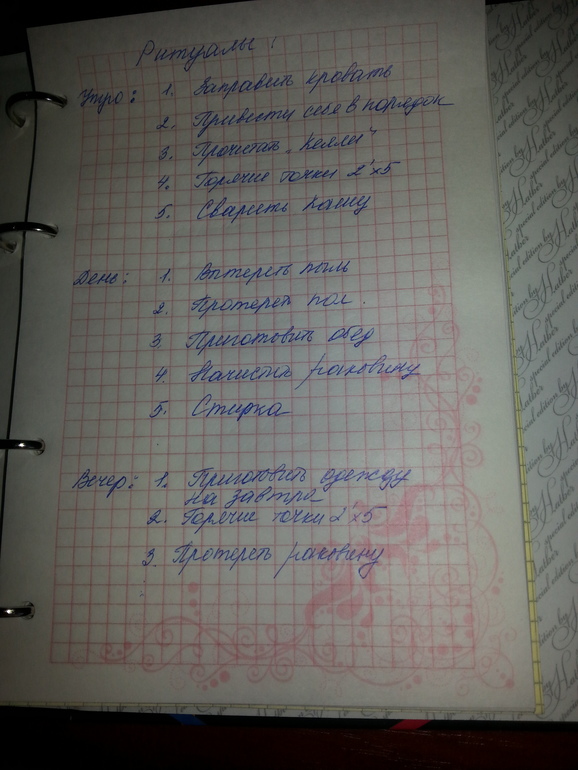 Ритуалы!
Утро: 1. Заправить кровать
2. Привести себя в порядок
3. Прочитать „Келли"
4. Горячие точки 2'×5
5. Сварить кашу
День: 1. Вытереть пыль
2. Протереть пол.
3 Приготовить обед
4. Начистить раковину
5. Стирка
Вечер: 1. Приготовить одежду
на завтра
2. Горячие точки 2'×5
3. Протереть раковину